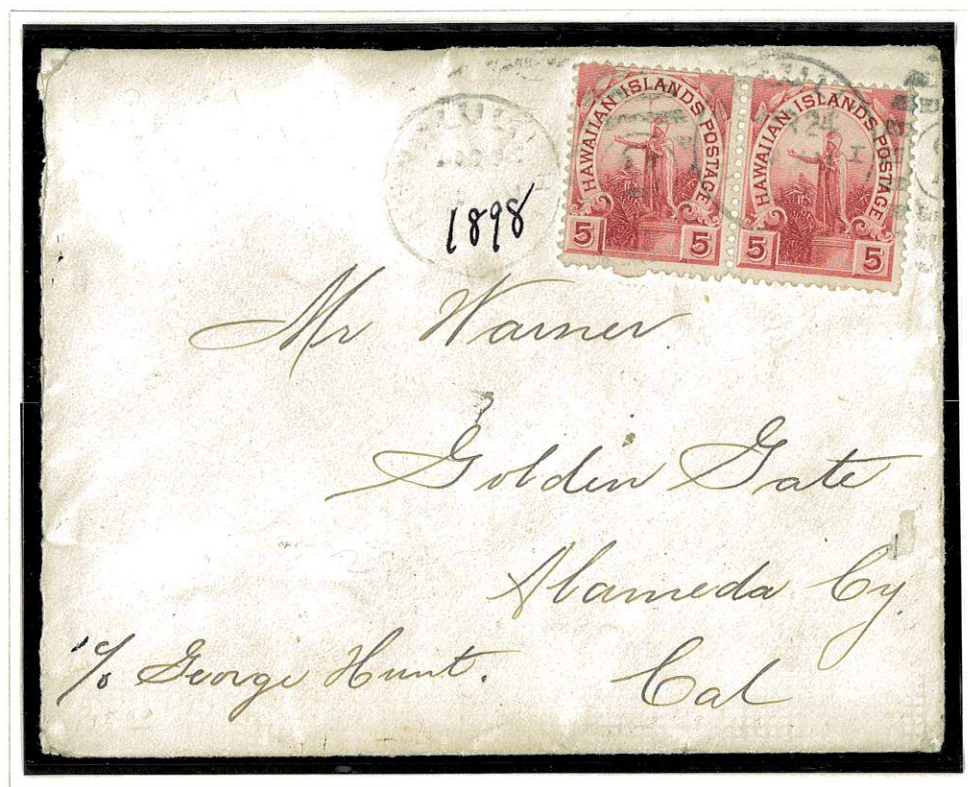 HAWAIIAN ISLANDS POSTAGE
5 5
HAWAIIAN ISLANDS POSTAGE
5 5
24
1898
Mr Warner
Golden Gate
Alameda Cy.
c/o George Hunt.
Cal